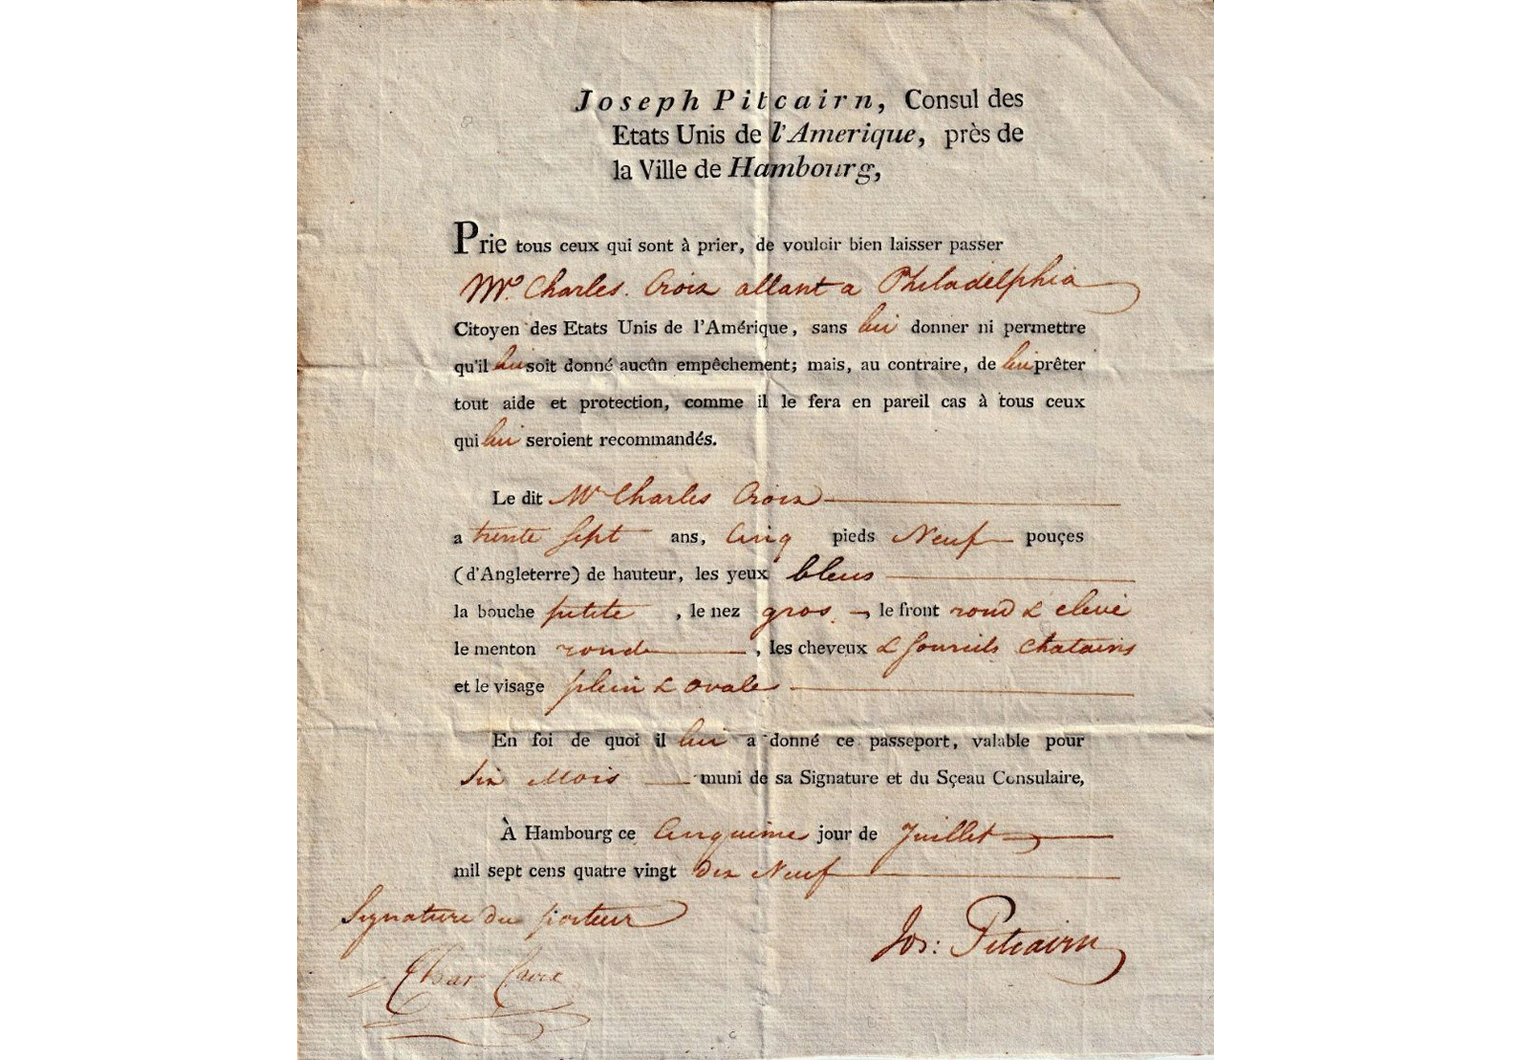 Joseph Pitcairn, Consul des
Etats Unis de l'Amerique, près de
la Ville de Hambourg,
Prie tous ceux qui sont à prier, de vouloir bien laisser passer
Mr. Charles Croix allant a Philadelphia
Citoyen des Etats Unis de l'Amérique, sans lui donner ni permettre
qu'il lui soit donné aucûn empêchement; mais, au contraire, de lui prêter
tout aide et protection, comme il le fera en pareil cas à tous ceux
qui lui seroient recommandés.
Le dit Mr Charles Croix
a trente sept ans, Cinq pieds Neuf pouçes
(d'Angleterre) de hauteur, les yeux bleus
la bouche petite, le nez gros, le front rond & elevé
le menton rond, les cheveux & sourcils chatains
et le visage plein & ovale
En foi de quoi il lui a donné ce passeport, valable pour
Six Mois muni de sa Signature et du Sçeau Consulaire,
À Hambourg ce Cinquieme jour de Juillet
mil sept cens quatre vingt dix Neuf
Signature du porteur
Jos: Pitcairn
Char Croix